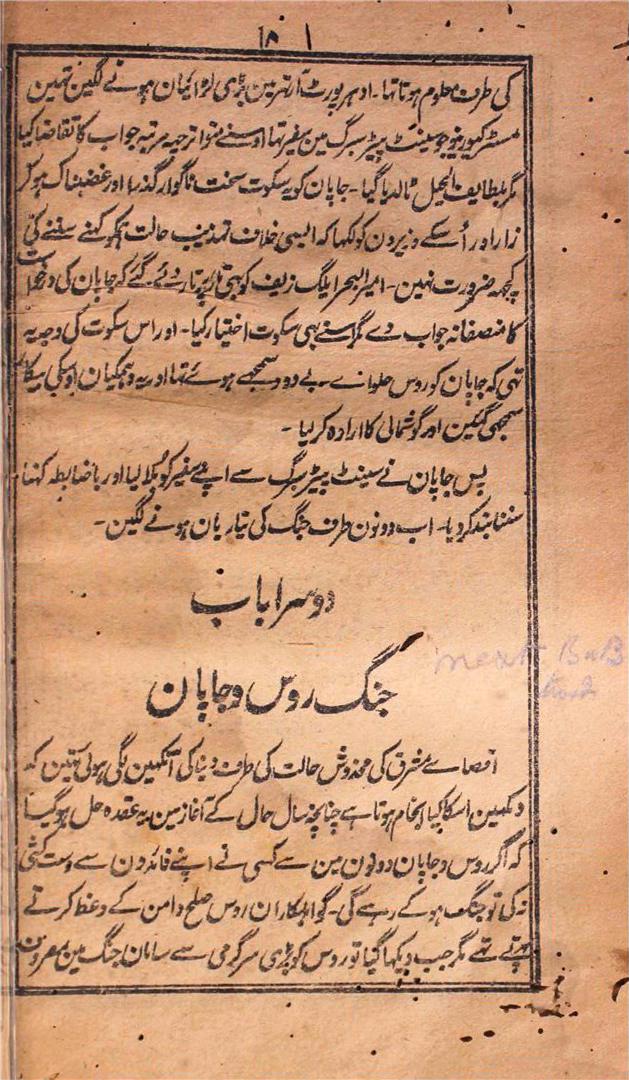 ۱۸۱
کی طرف معلوم ہوتا تھا۔ ادھر پورٹ آرتھر مین بڑی لڑائیان ہونے لگین تھین
مسٹر کیورینو جو سینٹ پیٹرسبرگ مین سفیر تھا اوسنے متواتر جیہ مرتبہ جواب کا تقاضا کیا
مگر بلطایف الحیل ٹالدیا گیا۔ جاپان کو یہ سکوت سخت ناگوار گذرا اور غضبناک ہو کر
زار اور اُسکے وزیرون کو لکھا کہ ایسی خلاف تہذیب حالت ہمکو کہنے سننے کی
کچھہ ضرورت نہین۔ امیر البحر ایلگ زیف کو بہتی تار پر تار دئے گئے کہ جاپان کی درخواست
کا منصفانہ جواب دے مگر اسنے بہی سکوت اختیار کیا۔ اور اس سکوت کی وجہ یہ
تہی کہ جاپان کو روس حلواے بے دود سمجھے ہوئے تھا اور یہ دہمکیان اوسکی بیکار
سمجھی گئین اور گوشمالی کا ارادہ کر لیا۔
پس جاپان نے سینٹ پیٹرسبرگ سے اپنے سفیر کو بُلا لیا اور باضابطہ کہنا
سننا بند کر دیا۔ اب دونون طرف جنگ کی تیاریان ہونے لگین۔
دوسرا باب
جنگ روس و جاپان
next BaB
اقصاے مشرق کی مخدوش حالت کی طرف دنیا کی آنکہین لگی ہوئی تہین کہ
دیکہین اسکا کیا انجام ہوتا ہے چنانچہ سال حال کے آغاز مین یہ عقدہ حل ہوگیا
کہ اگر روس و جاپان دونون مین سے کسی نے اپنے فائدون سے دست کشی
نہ کی تو جنگ ہو کے رہے گی۔ گو اہلکاران روس صلح و امن کے وعظ کرتے
پہرتے تہے مگر جب دیکہا گیا تو روس کو بڑی سرگرمی سے سامان جنگ مین مصروف